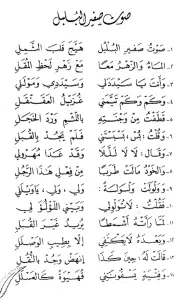 صوت صفير البلبل
١ـ صَوْتُ صَفِيرِ الْبُلْبُلِ هَيَّجَ قَلْبَ الثَّمِلِ
٢ـ الْمَاءُ وَالزَّهْرُ مَعًا مَعْ زَهْرِ لَحْظِ الْمُقَلِ
٣ـ وَأَنْتَ يَا سَيِّدَلِي وَسَيِّدَدِي وَمَوْلَلِي
٤ـ وَكَمْ وَكَمْ تَيَّمَنِي غُزَيِّلُ الْعَقَنْقَلِ
٥ـ قَطَفْتُ مِنْ وَجْنَتِهِ بِاللَّثْمِ وَرْدَ الْخَجَلِ
٦ـ وَقُلْتُ: بَسْبَسْبَسْتَنِي فَلَمْ يَجُدْ بِالْقُبَلِ
٧ـ وَقَالَ: لَا لَا لَلَلَا وَقَدْ غَدَا مُهَرْوِلِي
٨ـ وَالْخَوْدُ مَالَتْ طَرَبًا مِنْ فِعْلِ هٰذَا الرَّجُلِ
٩ـ وَوَلْوَلَتْ وَلْوَلَةً: وَلِي، وَلِي، يَا وَيْلَلِي
١٠ـ فَقُلْتُ: لَا تُوَلْوِلِي وَبَيِّنِي اللُّؤْلُؤَ لِي
١١ـ لَمَّا رَأَتْهُ أَشْمَطَا يُرِيدُ غَيْرَ الْقُبَلِ
١٢ـ وَبَعْدَهُ لَا يَكْتَفِي إِلَّا بِطِيبِ الْوَصْلِ
١٣ـ قَالَتْ لَهُ: حِينَ كَذَا انْهَضْ وَجُدْ بِالنُّقَلِ
١٤ـ وَفِتْيَةٍ يَسْقُونَنِي قُهَيْوَةً كَالْعَسَلِ